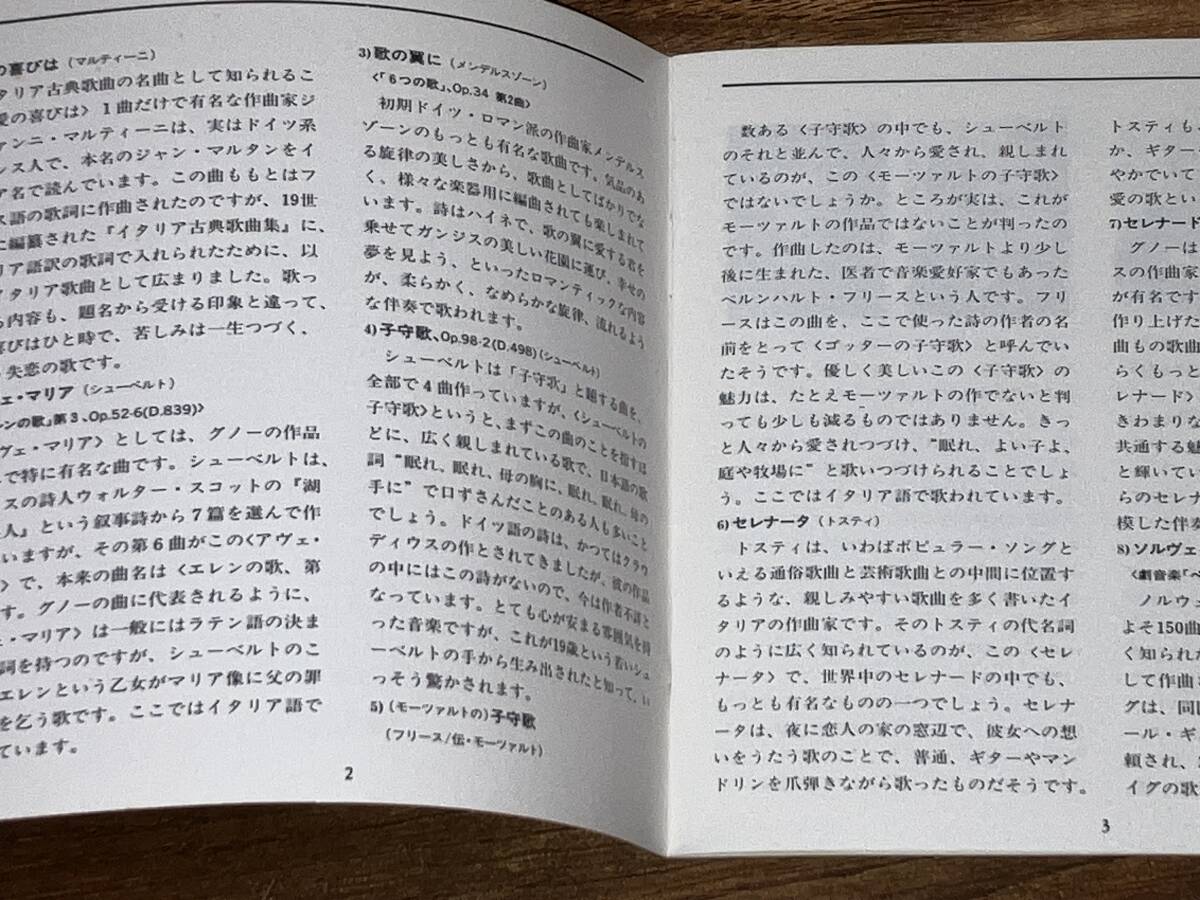 の喜びは（マルティーニ）
タリア古典歌曲の名曲として知られるこ
愛の喜びは〉１曲だけで有名な作曲家ジ
ァンニ・マルティーニは、実はドイツ系
ンス人で、本名のジャン・マルタンをイ
ア名で読んでいます。この曲ももとはフ
ス語の歌詞に作曲されたのですが、19世
に編纂された『イタリア古典歌曲集』に、
リア語訳の歌詞で入れられたために、以
イタリア歌曲として広まりました。歌っ
る内容も、題名から受ける印象と違って、
喜びはひと時で、苦しみは一生つづく、
失恋の歌です。
ェ・マリア（シューベルト）
レンの歌」第３、Op.52-6(D.839)〉
ヴェ・マリア〉としては、グノーの作品
で特に有名な曲です。シューベルトは、
スの詩人ウォルター・スコットの『湖
人』という叙事詩から７篇を選んで作
いますが、その第６曲がこの〈アヴェ・
〉で、本来の曲名は〈エレンの歌、第
す。グノーの曲に代表されるように、
ェ・マリア〉は一般にはラテン語の決ま
詞を持つのですが、シューベルトのこ
エレンという乙女がマリア像に父の罪
を乞う歌です。ここではイタリア語で
ています。
3) 歌の翼に（メンデルスゾーン）
〈「６つの歌」、Op.34 第2曲〉
初期ドイツ・ロマン派の作曲家メンデルス
ゾーンのもっとも有名な歌曲です。気品のあ
る旋律の美しさから、歌曲としてばかりでな
く、様々な楽器用に編曲されても楽しまれて
います。詩はハイネで、歌の翼に愛する君を
乗せてガンジスの美しい花園に運び、幸せの
夢を見よう、といったロマンティックな内容
が、柔らかく、なめらかな旋律、流れるよう
な伴奏で歌われます。
4) 子守歌、Op.98-2(D.498)（シューベルト）
シューベルトは「子守歌」と題する曲を、
全部で４曲作っていますが、〈シューベルトの
子守歌〉というと、まずこの曲のことを指すほ
どに、広く親しまれている歌で、日本語の歌
詞“眠れ、眠れ、母の胸に、眠れ、眠れ、母の
手に”で口ずさんだことのある人も多いこと
でしょう。ドイツ語の詩は、かつてはクラウ
ディウスの作とされてきましたが、彼の作品
の中にはこの詩がないので、今は作者不詳と
なっています。とても心が安まる雰囲気を持
った音楽ですが、これが19歳という若いシュ
ーベルトの手から生み出されたと知って、い
っそう驚かされます。
5)（モーツァルトの）子守歌
（フリース/伝・モーツァルト）
2
数ある〈子守歌〉の中でも、シューベルト
のそれと並んで、人々から愛され、親しまれ
ているのが、この〈モーツァルトの子守歌〉
ではないでしょうか。ところが実は、これが
モーツァルトの作品ではないことが判ったの
です。作曲したのは、モーツァルトより少し
後に生まれた、医者で音楽愛好家でもあった
ベルンハルト・フリースという人です。フリ
ースはこの曲を、ここで使った詩の作者の名
前をとって〈ゴッターの子守歌〉と呼んでい
たそうです。優しく美しいこの〈子守歌〉の
魅力は、たとえモーツァルトの作でないと判
っても少しも減るものではありません。きっ
と人々から愛されつづけ、“眠れ、よい子よ、
庭や牧場に”と歌いつづけられることでしょ
う。ここではイタリア語で歌われています。
6) セレナータ（トスティ）
トスティは、いわばポピュラー・ソングと
いえる通俗歌曲と芸術歌曲との中間に位置す
るような、親しみやすい歌曲を多く書いたイ
タリアの作曲家です。そのトスティの代名詞
のように広く知られているのが、この〈セレ
ナータ〉で、世界中のセレナードの中でも、
もっとも有名なものの一つでしょう。セレナ
ータは、夜に恋人の家の窓辺で、彼女への想
いをうたう歌のことで、普通、ギターやマン
ドリンを爪弾きながら歌ったものだそうです。
トスティも
か、ギター
やかでいて
愛の歌とい
7) セレナード
グノーは
スの作曲家
が有名です
作り上げた
曲もの歌曲
らくもっと
レナード〉
きわまりな
共通する魅
と輝いてい
らのセレナ
模した伴奏
8) ソルヴェ
〈劇音楽「ペ
ノルウ
よそ150曲
く知られた
して作曲
グは、同じ
ール・ギ
頼され、
イグの歌
3